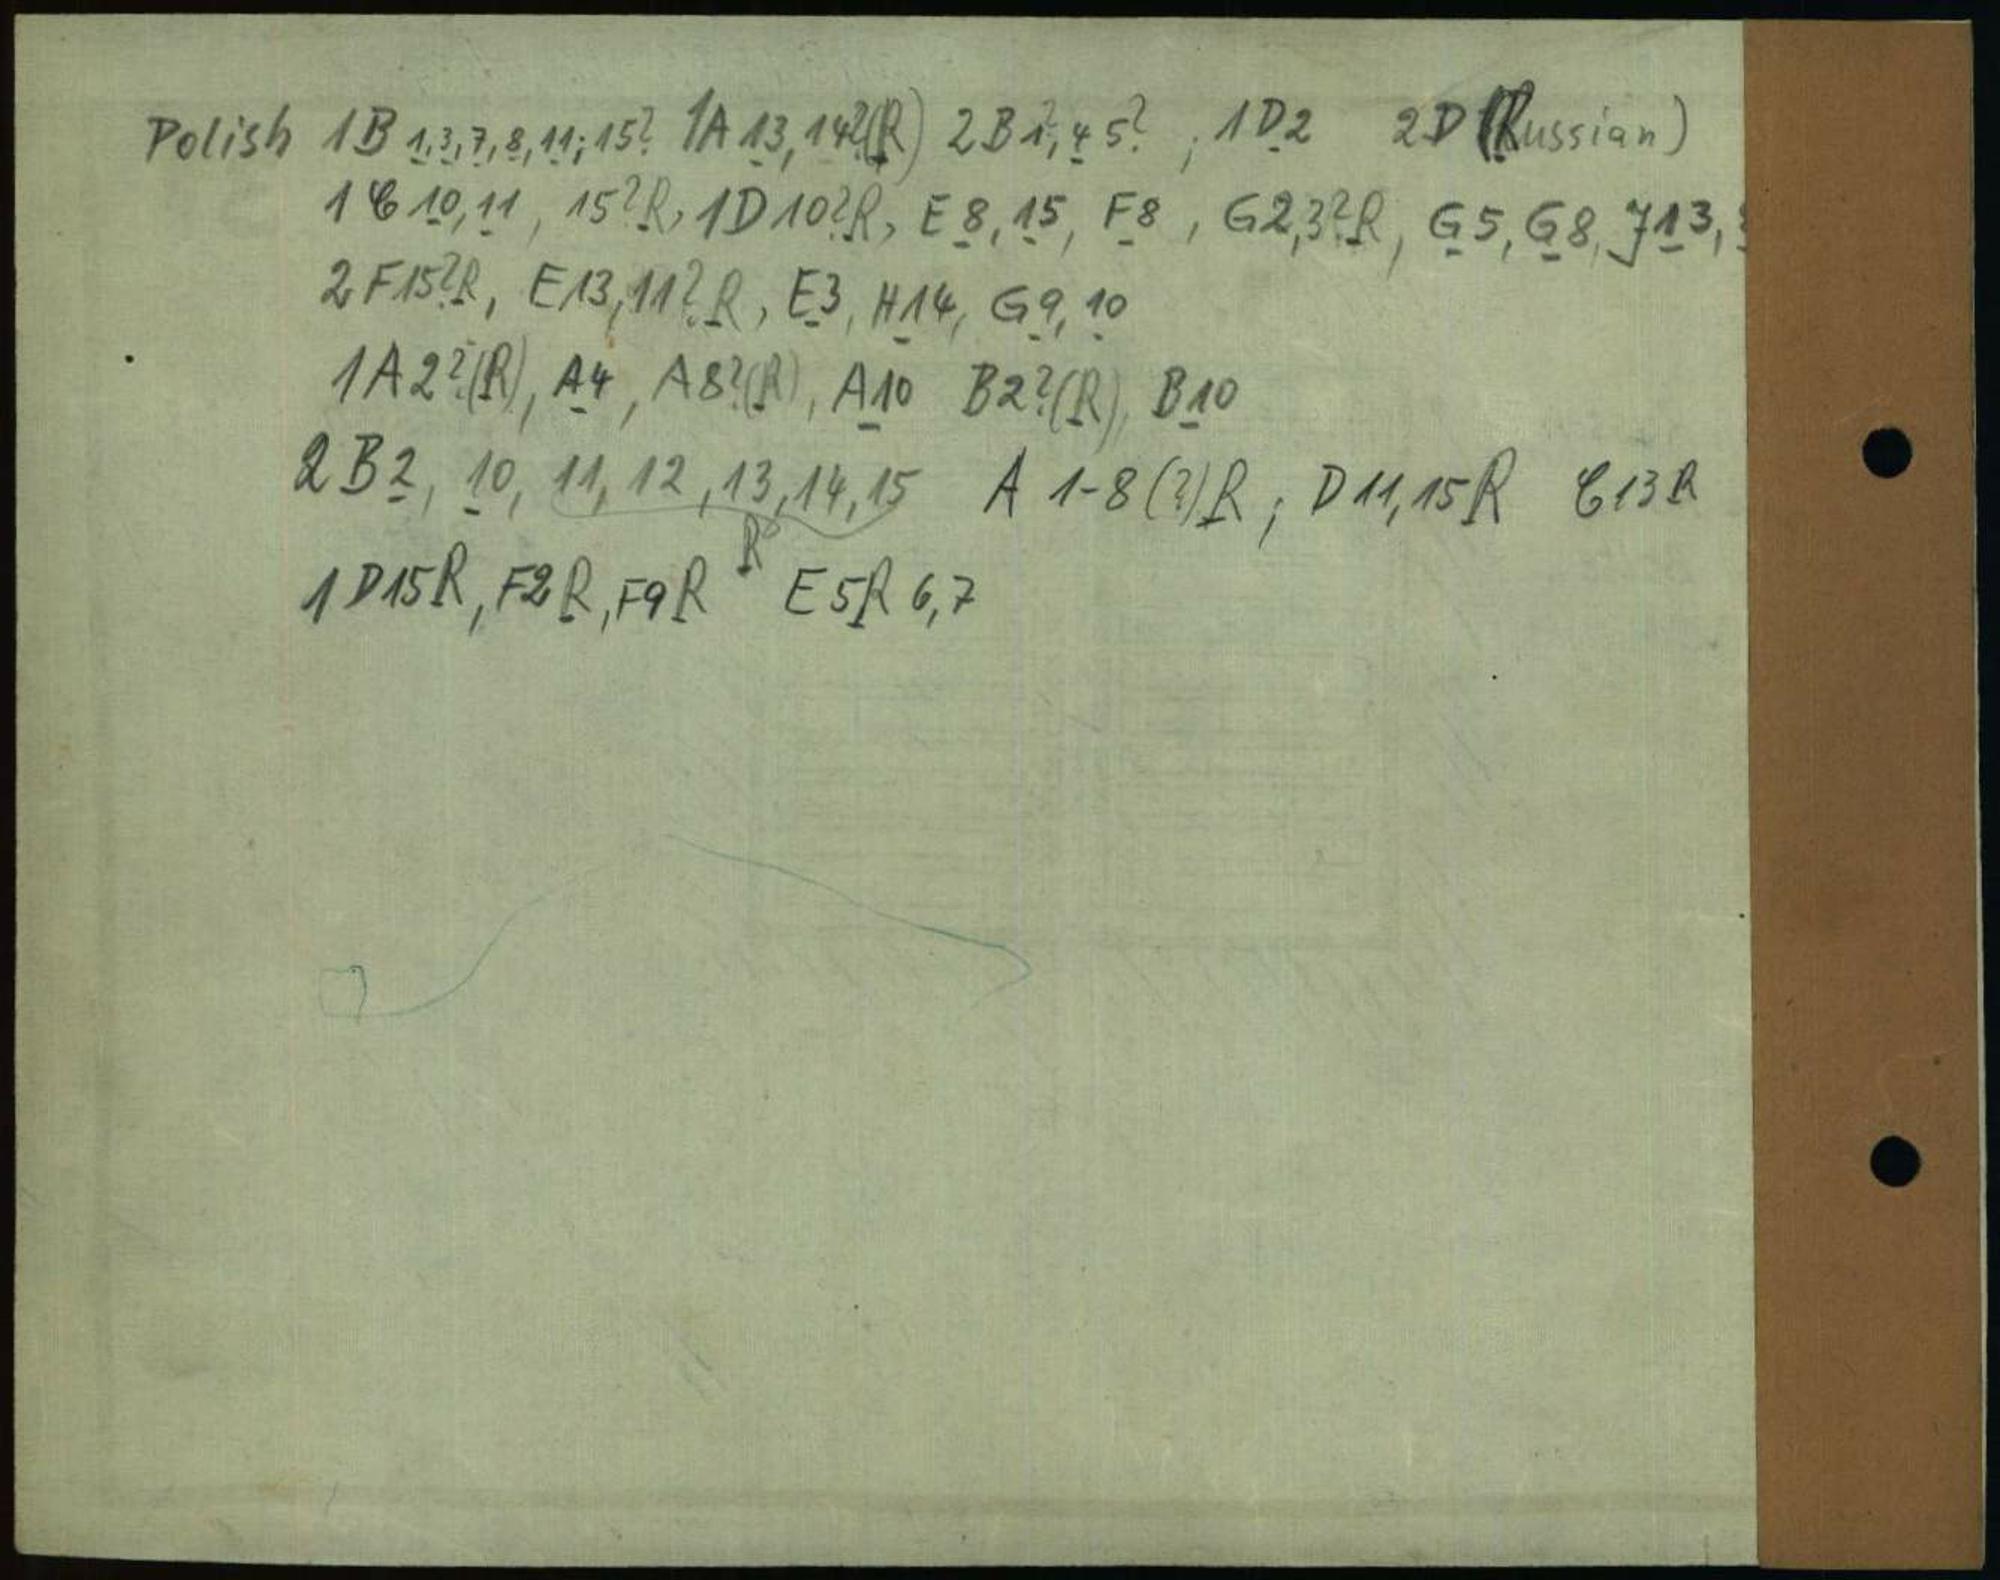 Polish 1B 1,3,7,8,11; 15? 1A 13, 14?(R) 2B 1?, 4 5? ; 1D2 2D (Russian)
1C 10, 11, 15?R, 1D 10?R, E 8, 15, F8, G2,3?R, G5, G8, J13,
2F15?R, E13, 11?R, E3, H14, G9, 10
1A2?(R), A4, A8?(R), A10 B2?(R), B10
2B2, 10, 11, 12, 13, 14, 15 A 1-8(?)R; D11, 15R C13R
R
1D15R, F2R, F9R E5R 6,7